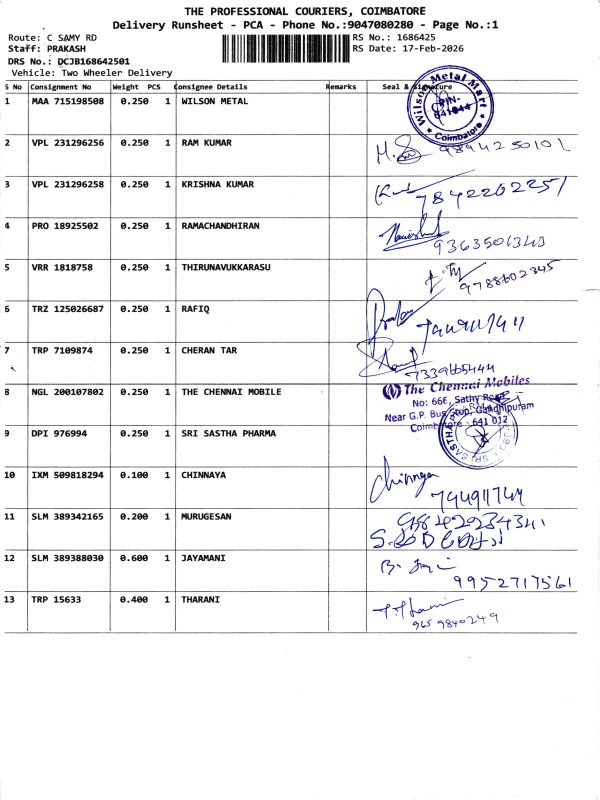 THE PROFESSIONAL COURIERS, COIMBATORE
Delivery Runsheet - PCA - Phone No.:9047080280 - Page No.:1
Route: C SAMY RD
RS No.: 1686425
Staff: PRAKASH
RS Date: 17-Feb-2026
DRS No.: DCJB168642501
Vehicle: Two Wheeler Delivery
S No Consignment No Weight PCS Consignee Details Remarks Seal & Signature
1 MAA 715198508 0.250 1 WILSON METAL
Wilson Metal Mart
PIN-
641044
* Coimbatore *
2 VPL 231296256 0.250 1 RAM KUMAR
9894250101
3 VPL 231296258 0.250 1 KRISHNA KUMAR
7842202251
4 PRO 18925502 0.250 1 RAMACHANDHIRAN
9363501343
5 VRR 1818758 0.250 1 THIRUNAVUKKARASU
9788602345
6 TRZ 125026687 0.250 1 RAFIQ
7 TRP 7109874 0.250 1 CHERAN TAR
7339665444
8 NGL 200107802 0.250 1 THE CHENNAI MOBILE
The Chennai Mobiles
No: 666, Sathy Road
Near G.P. Bus Stop, Gandhipuram
Coimbatore - 641 012
9 DPI 976994 0.250 1 SRI SASTHA PHARMA
SRI SASTHA
10 IXM 509818294 0.100 1 CHINNAYA
Chinnaya
11 SLM 389342165 0.200 1 MURUGESAN
12 SLM 389388030 0.600 1 JAYAMANI
9952717561
13 TRP 15633 0.400 1 THARANI
9659840249